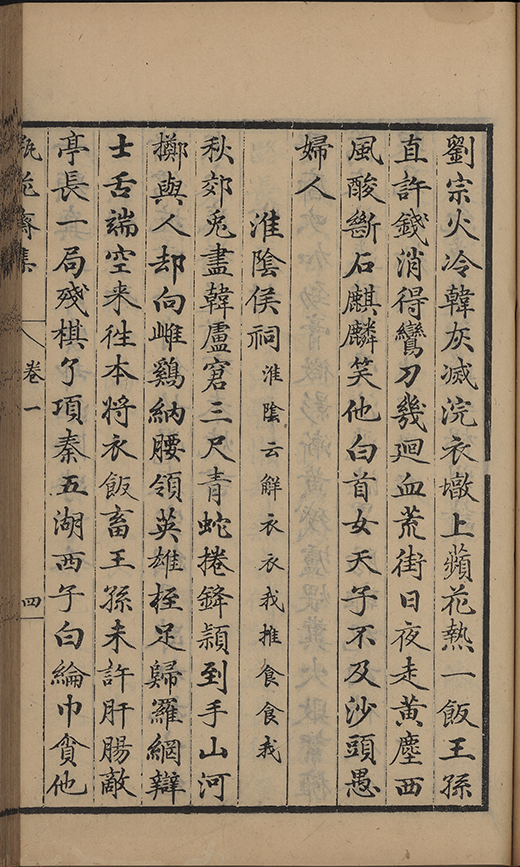 劉宗火冷韓灰滅浣衣墩上蘋花熱一飯王孫
直許錢消得鸞刀幾迴血荒街日夜走黃塵西
風酸斷石麒麟笑他白首女天子不及沙頭愚
婦人
淮陰侯祠淮陰云解衣衣我推食食我
秋郊兎盡韓盧窘三尺青蛇捲鋒頴到手山河
擲與人却向雌鷄納腰領英雄桎足歸羅網辯
士舌端空来往本將衣飯畜王孫未許肝腸敵
亭長一局殘棋了項秦五湖西子白綸巾貪他
瓶花齋集
卷一
四